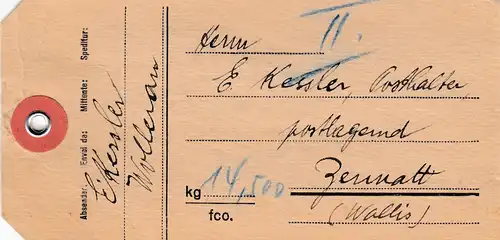 Absender: Envoi de: Mittente: Speditur:
E. Kessler
Wollerau
II.
Herrn
E. Kessler, Posthalter
postlagernd
Zermatt
(Wallis)
kg 14,500
fco.